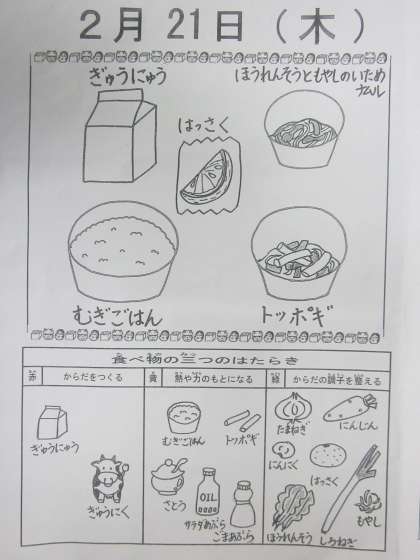 2月21日(木)
ぎゅうにゅう
ほうれんそうともやしのいため
ナムル
はっさく
むぎごはん
トッポギ
食べ物の三つのはたらき
赤 からだをつくる
黄 熱や力のもとになる
緑 からだの調子を整える
ぎゅうにゅう
ぎゅうにく
むぎごはん
トッポギ
さとう
サラダあぶら
ごまあぶら
OIL
たまねぎ
にんじん
にんにく
はっさく
ほうれんそう
しろねぎ
もやし